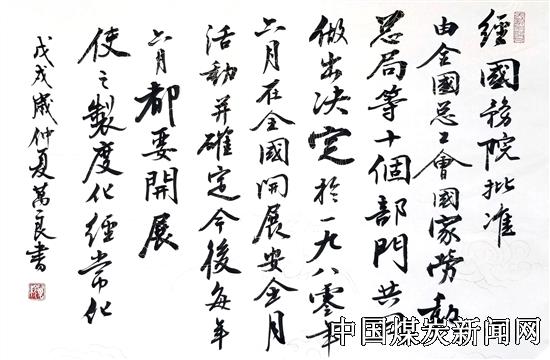 經國務院批准
由全國总工會國家勞動
总局等十個部門共同
做出决定於一九八零年
六月在全國開展安全月
活動并確定今後每年
六月都要開展
使之製度化經常化
戊戌歲仲夏萬良書
中国煤炭新闻网